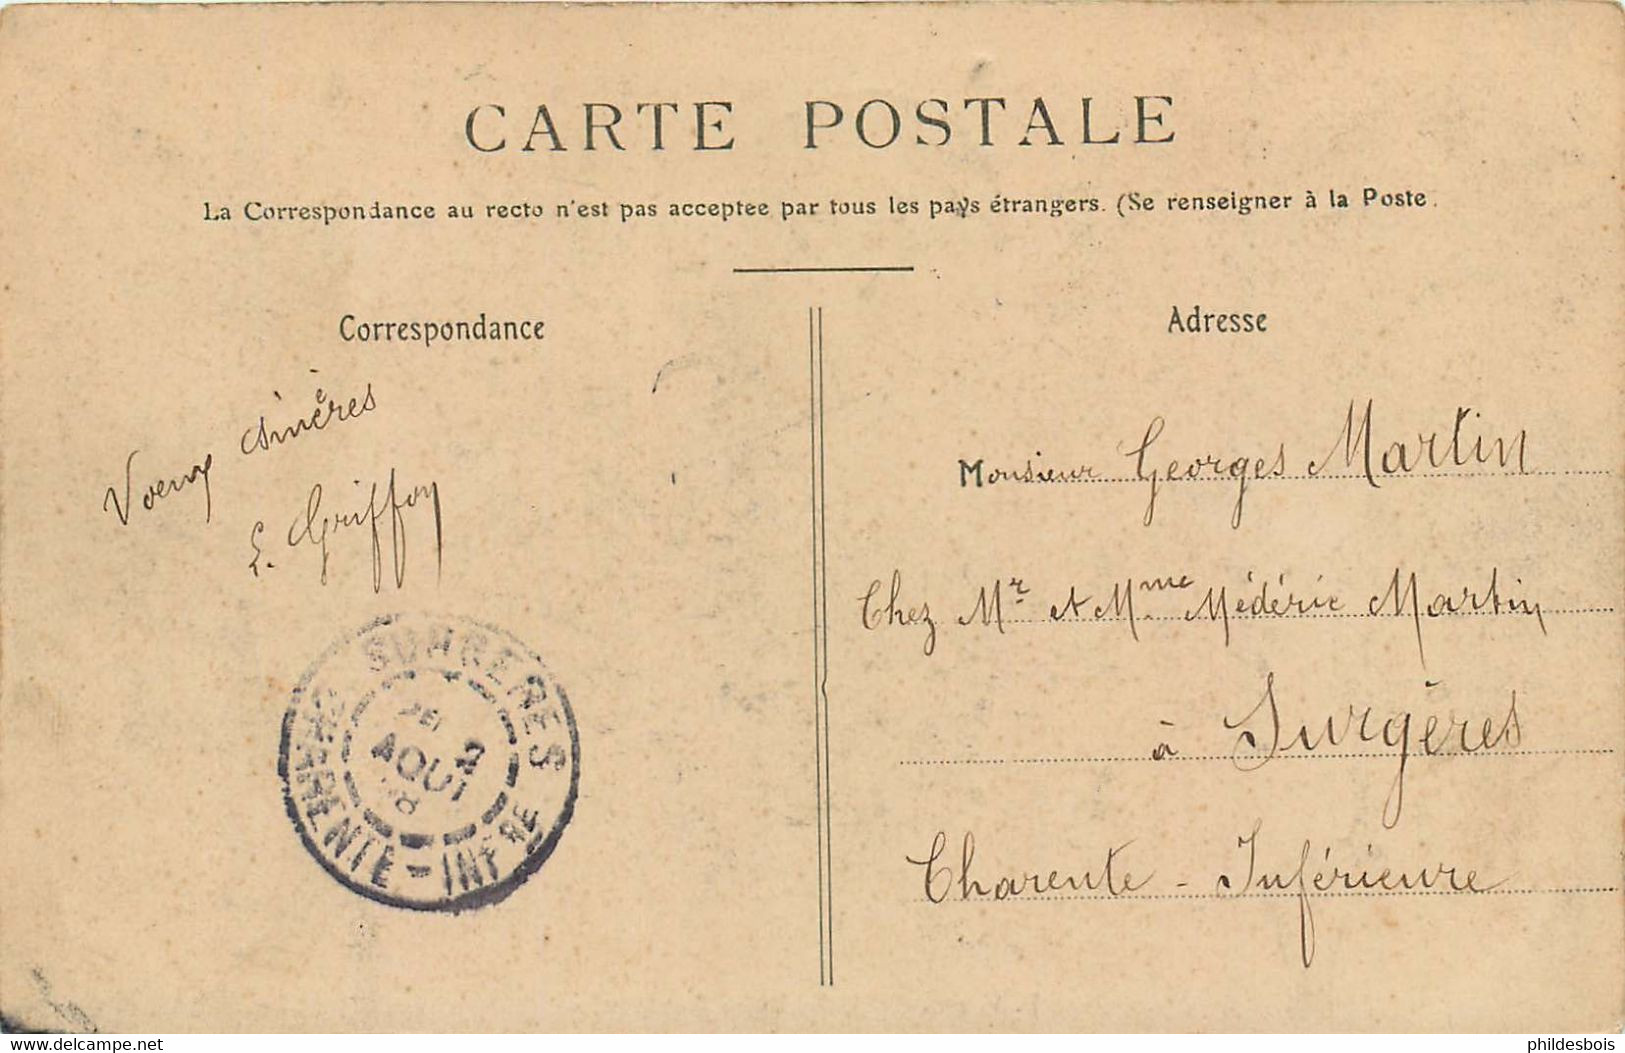 CARTE POSTALE
La Correspondance au recto n'est pas acceptee par tous les pays étrangers. (Se renseigner à la Poste.
Correspondance
Voeux sincères
E. Griffon
SURGERES
AOUT
CHARENTE-INFRE
Adresse
Monsieur Georges Martin
Chez Mr et Mme Médéric Martin
à Surgères
Charente - Inférieure
delcampe.net
phildesbois